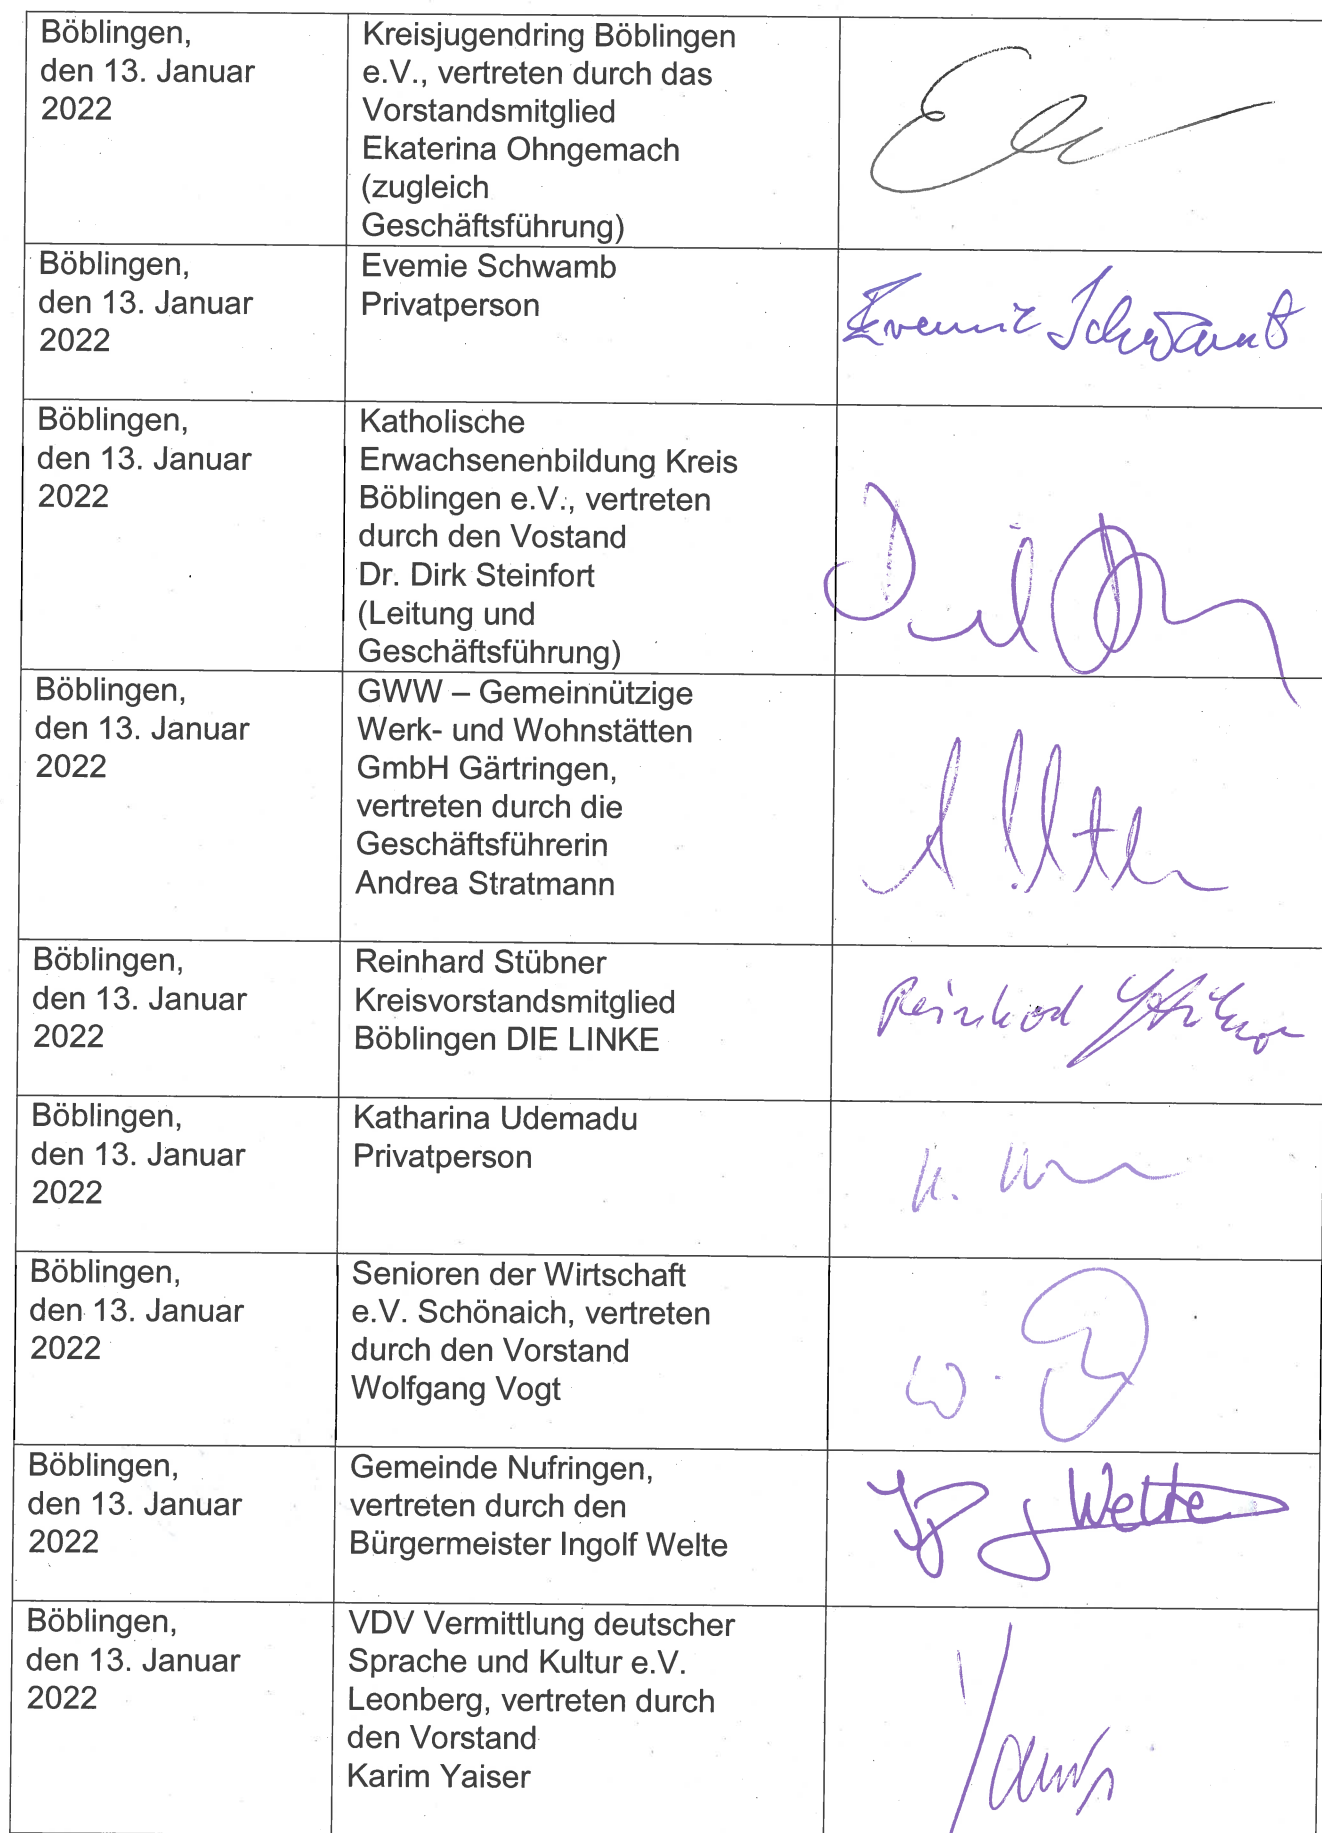 Böblingen,
den 13. Januar
2022
Kreisjugendring Böblingen
e.V., vertreten durch das
Vorstandsmitglied
Ekaterina Ohngemach
(zugleich
Geschäftsführung)
Böblingen,
den 13. Januar
2022
Evemie Schwamb
Privatperson
Evemie Schwamb
Böblingen,
den 13. Januar
2022
Katholische
Erwachsenenbildung Kreis
Böblingen e.V., vertreten
durch den Vostand
Dr. Dirk Steinfort
(Leitung und
Geschäftsführung)
Böblingen,
den 13. Januar
2022
GWW – Gemeinnützige
Werk- und Wohnstätten
GmbH Gärtringen,
vertreten durch die
Geschäftsführerin
Andrea Stratmann
Böblingen,
den 13. Januar
2022
Reinhard Stübner
Kreisvorstandsmitglied
Böblingen DIE LINKE
Reinhard Stübner
Böblingen,
den 13. Januar
2022
Katharina Udemadu
Privatperson
K.
Böblingen,
den 13. Januar
2022
Senioren der Wirtschaft
e.V. Schönaich, vertreten
durch den Vorstand
Wolfgang Vogt
W.
Böblingen,
den 13. Januar
2022
Gemeinde Nufringen,
vertreten durch den
Bürgermeister Ingolf Welte
Welte
Böblingen,
den 13. Januar
2022
VDV Vermittlung deutscher
Sprache und Kultur e.V.
Leonberg, vertreten durch
den Vorstand
Karim Yaiser